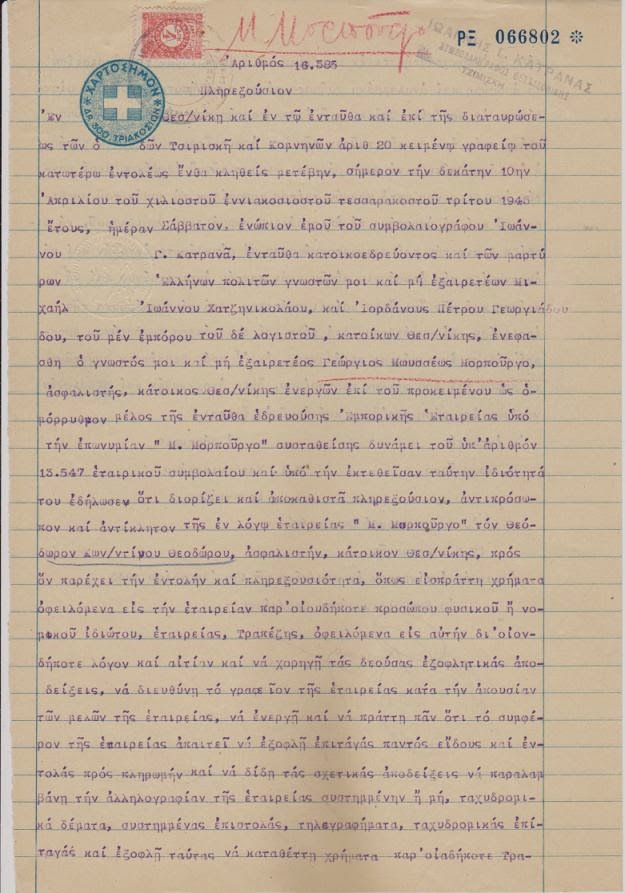 Μ. Μορπούργο
ΡΞ 066802 ✻
ΙΩΑΝΝΗΣ Γ. ΚΑΤΡΑΝΑΣ
ΣΥΜΒΟΛΑΙΟΓΡΑΦΟΣ ΘΕΣΣΑΛΟΝΙΚΗΣ
ΤΣΙΜΙΣΚΗ
Αριθμός 16.585
ΧΑΡΤΟΣΗΜΟΝ
ΔΡ. 300 ΤΡΙΑΚΟΣΙΩΝ
Πληρεξούσιον
Ἐν Θεσ/νίκη καί ἐν τῷ ἐνταῦθα καί ἐπί τῆς διαταυρώσε-
ως τῶν ὁ δῶν Τσιμισκῆ καί Κομνηνῶν ἀριθ 20 κειμένῳ γραφείῳ τοῦ
κατωτέρω ἐντολέως ἔνθα κληθείς μετέβην, σήμερον τήν δεκάτην 10ην
Ἀπριλίου τοῦ χιλιοστοῦ ἐννιακοσιοστοῦ τεσσαρακοστοῦ τρίτου 1943
ἔτους, ἡμέραν Σάββατον, ἐνώπιον ἐμοῦ τοῦ συμβολαιογράφου Ἰωάν-
νου Γ. Κατρανᾶ, ἐνταῦθα κατοικοεδρεύοντος καί τῶν μαρτύ
ρων Ἑλλήνων πολιτῶν γνωστῶν μοι καί μή ἐξαιρετέων Μι-
χαήλ Ἰωάννου Χατζηνικολάου, καί Ἰορδάνους Πέτρου Γεωργιάδου
δου, τοῦ μέν ἐμπόρου τοῦ δέ λογιστοῦ , κατοίκων Θεσ/νίκης, ἐνεφα-
σθη ὁ γνωστός μοι καί μή ἐξαιρετέος Γεώργιος Μωυσσέως Μορποῦργο,
ἀσφαλιστής, κάτοικος Θεσ/νίκης ἐνεργῶν ἐπί τοῦ προκειμένου ὡς ὁ-
μόρρυθμον μέλος τῆς ἐνταῦθα ἑδρευούσης Ἐμπορικῆς Ἑταιρείας ὑπό
τήν ἐπωνυμίαν " Μ. Μορποῦργο" συσταθείσης δυνάμει τοῦ ὑπ'ἀριθμόν
13.547 ἑταιρικοῦ συμβολαίου καί ὑπό τήν ἐκτεθεῖσαν ταύτην ἰδιότητά
του ἐδήλωσεν ὅτι διορίζει καί ἀποκαθιστᾶ πληρεξούσιον, ἀντιπρόσω-
πον καί ἀντίκλητον τῆς ἐν λόγῳ ἑταιρείας " Μ. Μορποῦργο" τόν Θεό-
δωρον Κων/ντίνου Θεοδώρου, ἀσφαλιστήν, κάτοικον Θεσ/νίκης, πρός
ὅν παρέχει τήν ἐντολήν καί πληρεξουσιότητα, ὅπως εἰσπράττη χρήματα
ὀφειλόμενα εἰς τήν ἑταιρείαν παρ'οἱουδήποτε προσώπου φυσικοῦ ἤ νο-
μικοῦ ἰδιώτου, ἑταιρείας, Τραπέζης, ὀφειλόμενα εἰς αὐτήν δι'οἱον-
δήποτε λόγον καί αἰτίαν καί νά χορηγῆ τάς δεούσας ἐξοφλητικάς ἀπο-
δείξεις, νά διευθύνη τό γραφεῖον τῆς ἑταιρείας κατά τήν ἀπουσίαν
τῶν μελῶν τῆς ἑταιρείας, νά ἐνεργῆ καί νά πράττη πᾶν ὅτι τό συμφέ-
ρον τῆς ἑταιρείας ἀπαιτεῖ νά ἐξοφλῆ ἐπιταγάς παντός εἴδους καί ἐν-
τολάς πρός πληρωμήν καί νά δίδη τάς σχετικάς ἀποδείξεις νά παραλαμ
βάνη τήν ἀλληλογραφίαν τῆς ἑταιρείας συστημμένην ἤ μή, ταχυδρομι-
κά δέματα, συστημμένας ἐπιστολάς, τηλεγραφήματα, ταχυδρομικάς ἐπι-
ταγάς καί ἐξοφλῆ ταύτας νά καταθέττη χρήματα παρ'οἱαδήποτε Τρα-